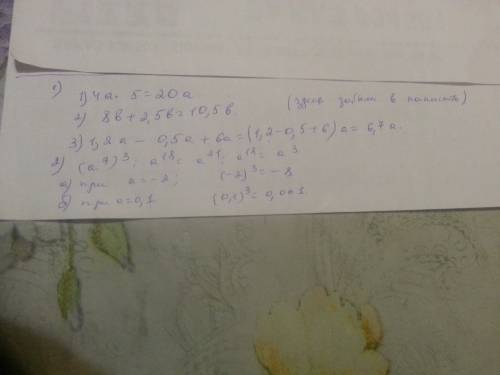 1)
1) 4a · 5 = 20a
2) 8в + 2,5в = 10,5в (здесь забыли в
3) 1,2a - 0,5a + 6a = (1,2 - 0,5 + 6) a = 6,7a.
2) (a⁷)³ : a¹⁸ = a²¹ : a¹⁸ = a³
а) при a = -2; (-2)³ = -8
б) при a = 0,1 (0,1)³ = 0,001